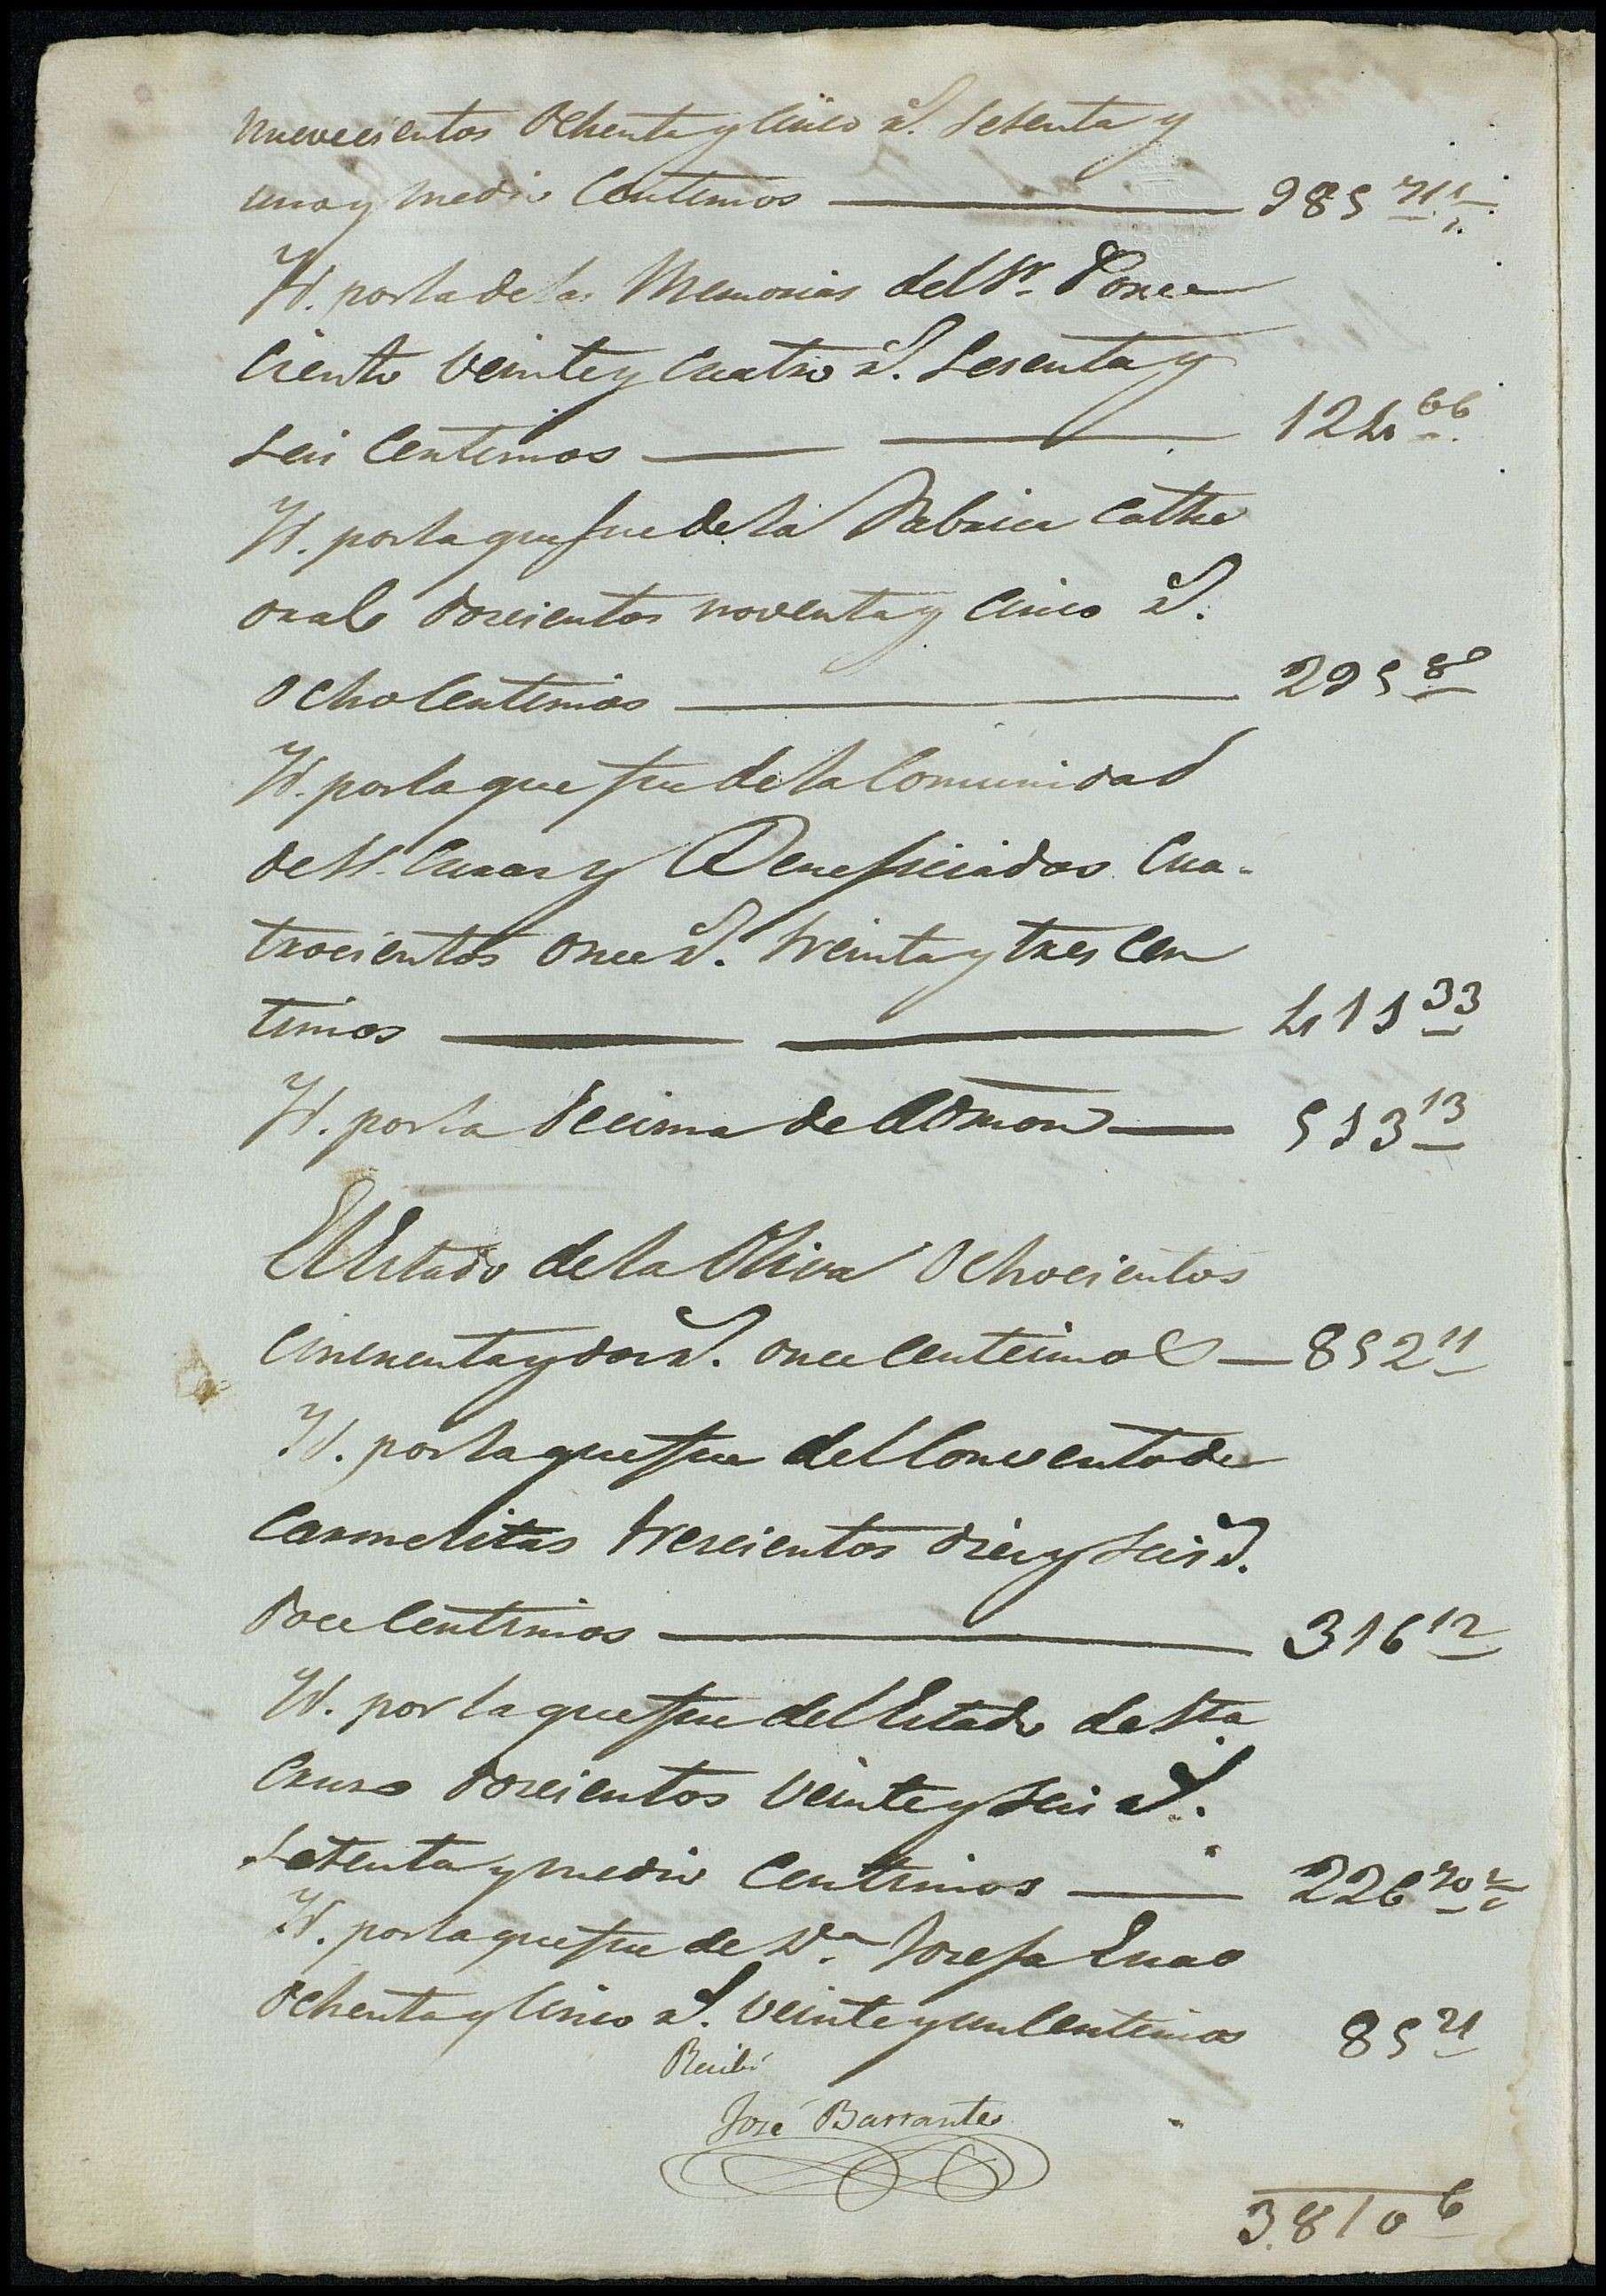 nuevecientos ochenta y cinco r.s setenta y
uno y medio centimos — 985 71 1/2
Yd. por la de las Memorias del Sr. Ponce
ciento veinte y cuatro r.s sesenta y
seis centimos — 124 66
Yd. por la que fue de la Fabrica Cathe
dral doscientos noventa y cinco r.s
ocho centimos — 295 80
Yd. por la que fue de la Comunidad
de SS. Curas y Beneficiados cua-
trocientos once r.s treinta y tres cen
timos — 411 33
Yd. por la Decima de Admon — 513 13
El Estado de la Oliva ochocientos
cincuenta y dos r.s once centimos — 852 11
Yd. por la que fue del Convento de
Carmelitas trescientos diez y seis r.s
doce centimos — 316 12
Yd. por la que fue del Estado de Sta.
Cruz doscientos veinte y seis r.s
setenta y medio centimos — 226 70 1/2
Yd. por la que fue de D.a Josefa
ochenta y cinco r.s veinte y un centimos 85 21
Recibí
José Barrantes
3.810 6